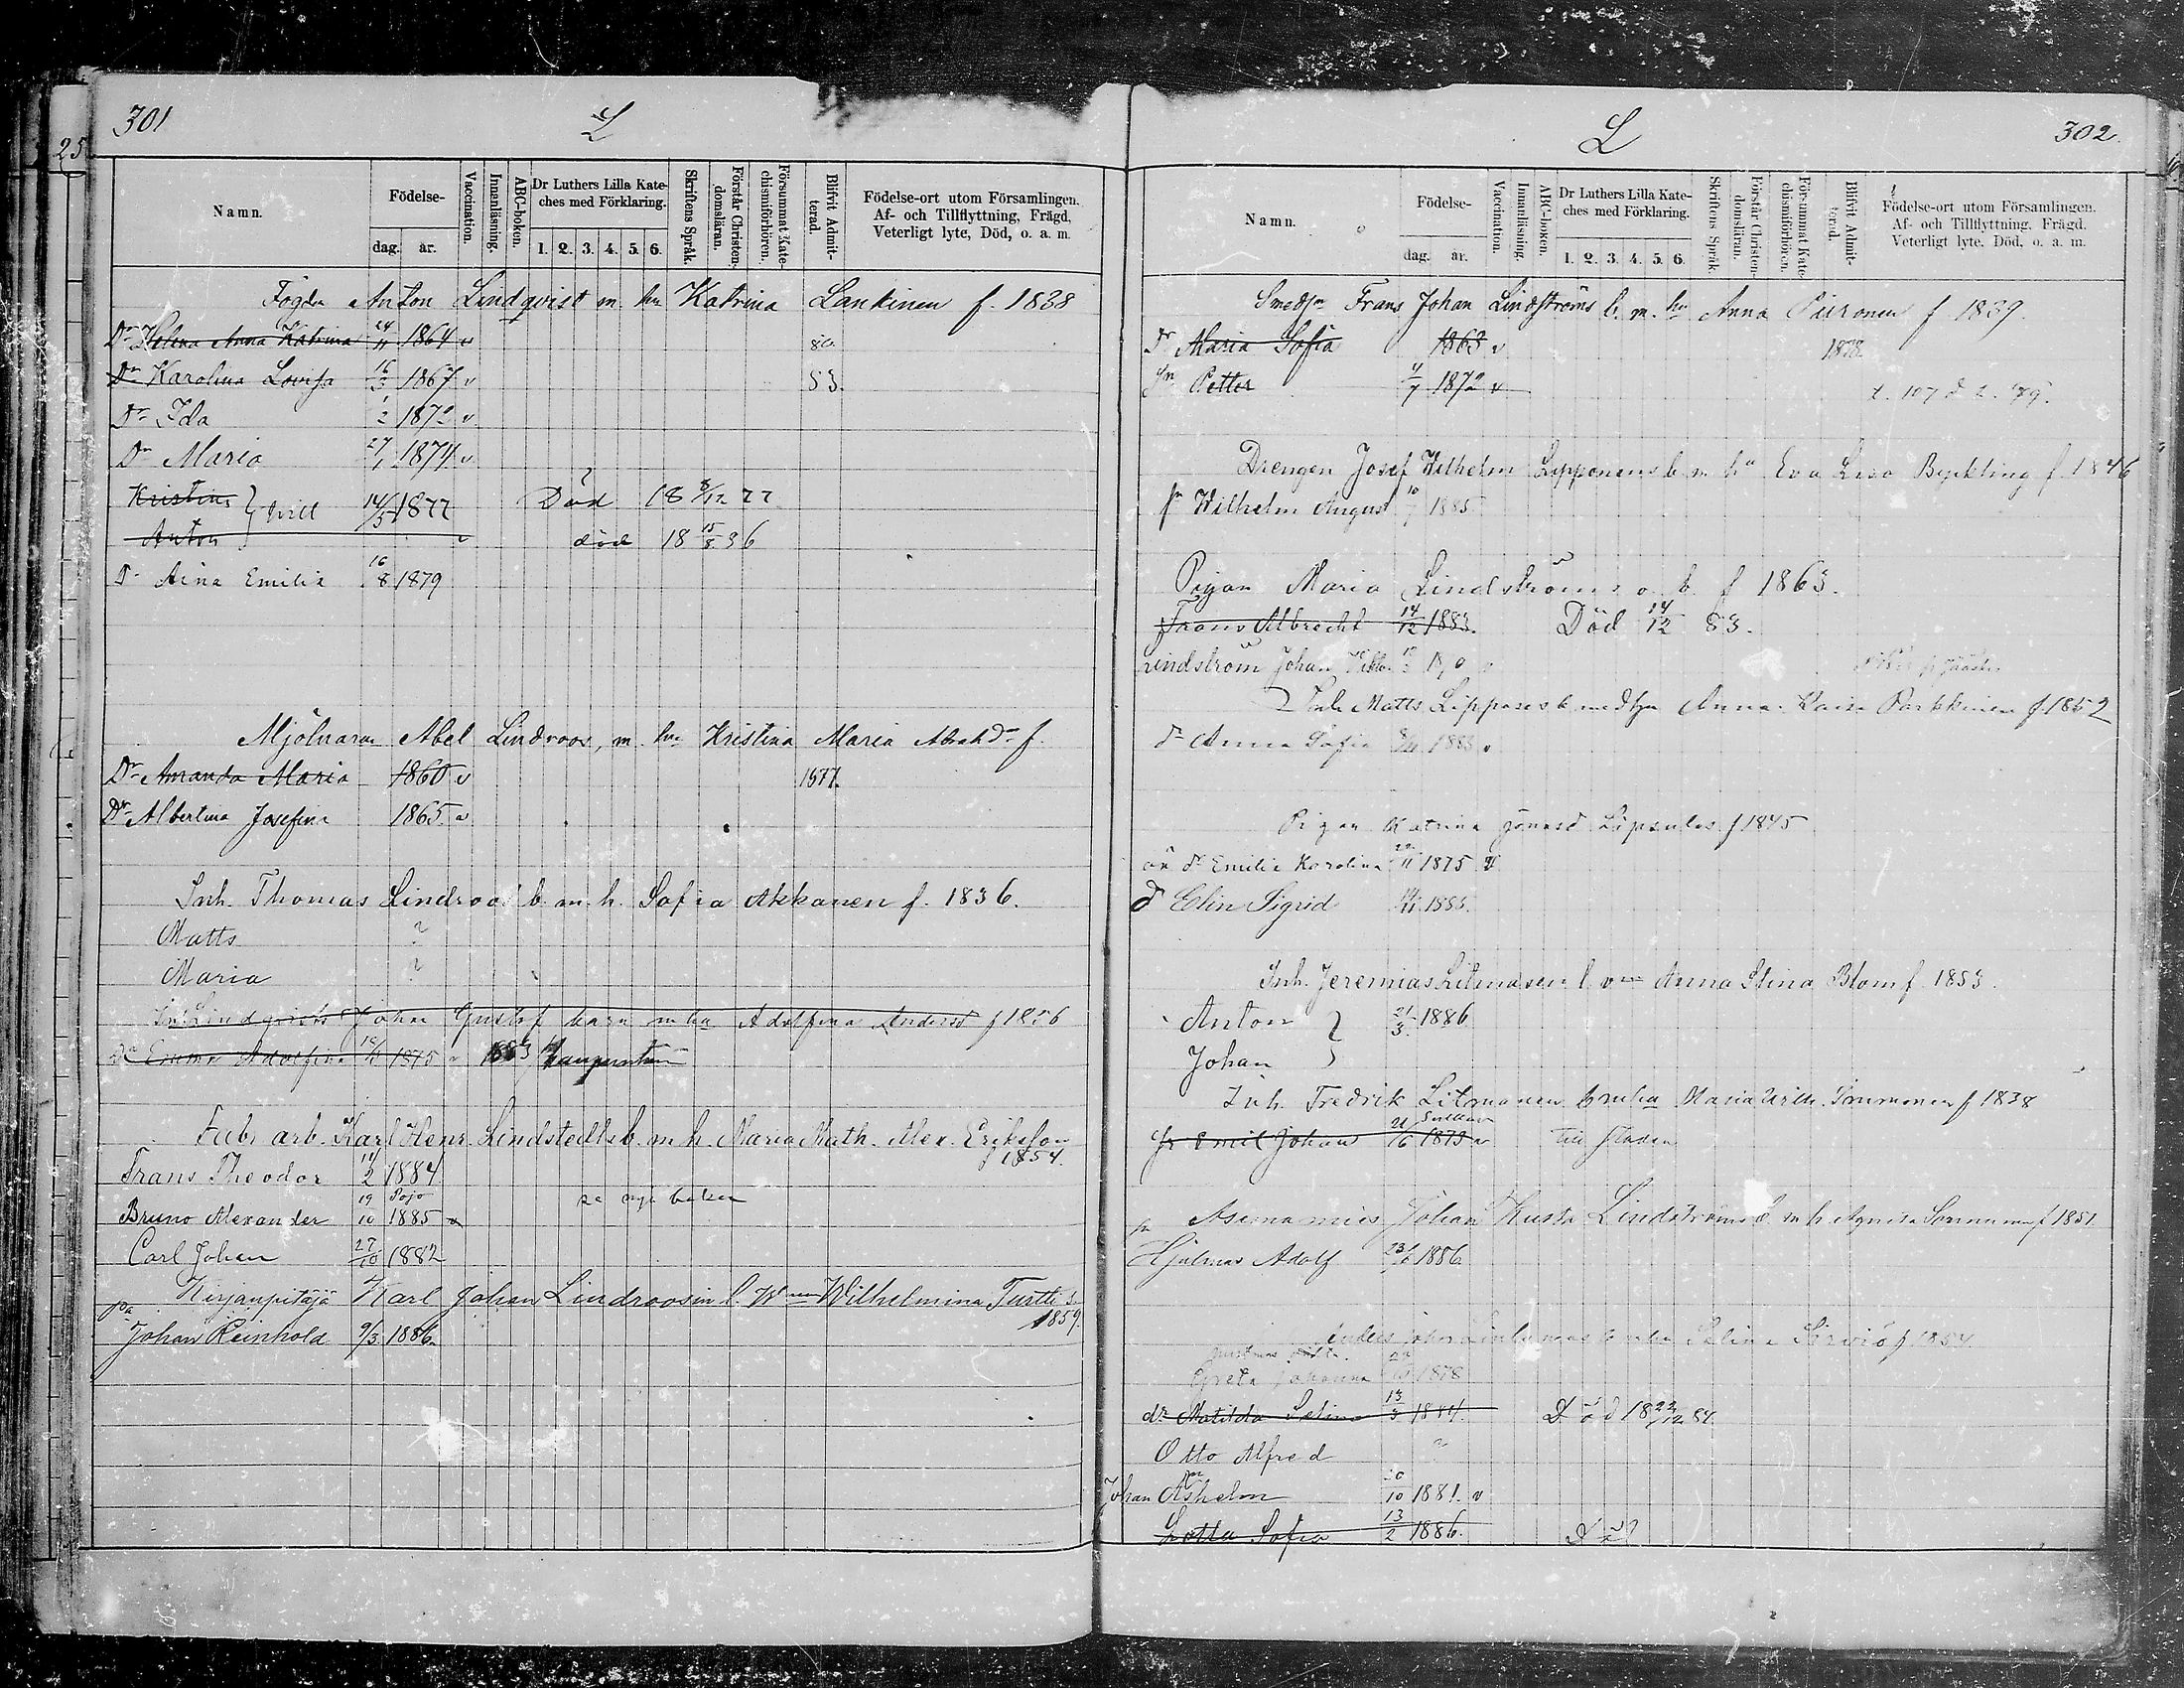 301
L
Namn.
Födelse-
dag.
år.
Vaccination.
Innanläsning.
ABC-boken.
Dr Luthers Lilla Kate-
ches med Förklaring.
1. 2. 3. 4. 5. 6.
Skriftens Språk.
Förstår Christen-
domsläran.
Försummat Kate-
chismiförhören.
Blifvit Admit-
terad.
Födelse-ort utom Församlingen.
Af- och Tillflyttning, Frägd,
Veterligt lyte, Död, o. a. m.
Anton Lindqvist m. hu Katrina Lankinen f. 1838
Dr Helena Anna Katrina 24/11 1864 v 80
Dr Karolina Lovisa 16/3 1867 v 83.
Dr Ida 1/2 1872 v
Dr Maria 27/1 1874 v
Kristina } tvill 14/5 1877 Död 18 8/12 77
Anton v död 18 15/8 86
Dr Aina Emilia 16/8 1879
Mjölnaren Abel Lindroos, m. hu Kristina Maria f.
Dr Amanda Maria 1860 v 1877.
Dr Albertina Josefina 1865 v
Inh. Thomas Lindroos b. m. h. Sofia Akkanen f. 1836.
Matts ?
Maria ?
Johan Gustaf barn m hu Adolfina f 1856
Emma Adolfina 1875 v 1883
Fabr arb. Karl Henr. Lindstedts b. m. h. Maria Math. Alex. Eriksson
f 1854.
Frans Theodor 11/2 1884
Bruno Alexander 19/10 Pojo 1885 v se nya boken
Carl Johan 27/10 1882
Kirjanpitäjä Karl Johan Lindroosin l. Wilhelmina Turtti s.
1859.
pa Johan Reinhold 9/3 1886
L
302.
Namn.
Födelse-
dag.
år.
Vaccination.
Innanläsning.
ABC-boken.
Dr Luthers Lilla Kate-
ches med Förklaring.
1. 2. 3. 4. 5. 6.
Skriftens Språk.
Förstår Christen-
domsläran.
Försummat Kate-
chismiförhören.
Blifvit Admit-
terad.
Födelse-ort utom Församlingen.
Af- och Tillflyttning, Frägd.
Veterligt lyte, Död, o. a. m.
Frans Johan Lindströms b. m. hu Anna Piironen f 1839.
Dr Maria Sofia 1863 v 1878.
Sn Petter 4/7 1872 v
Drengen Josef Wilhelm Lipponens b m hu Eva Lisa f. 1846
Sn Wilhelm August 10/7 1885
Pigan Maria Lindströms o. b. f 1863.
Frans Albrecht 14/12 1883. Död 14/12 83.
Lindström Johan Viktor
Inh Matts Lipposes b med hu Anna Kaisa Parkkinen f 1852
dr Anna Sofia 1883 v
Pigan Katrina f 1845
dr Emilia Karolina 1875 v
d Elin Sigrid 1885.
Inh. Jeremias Litmasen l. Anna Stina Blom f. 1853.
Anton } 21/3 1886
Johan }
Inh. Fredrik Litmanen b m hu Maria Ulr. f 1838
Sn Emil Johan 21/6 1873 v till staden
Asemamies Johan Kusta Lindströms b m h Agneta f 1851
pa Hjalmar Adolf 1886
Anders Johan Selina f 1854
Greta Johanna 1878
dr Matilda Selina 13/3 1884. Död 18 22/12 84.
Otto Alfred ?
Johan 20/10 1881. v
Lotta Sofia 13/2 1886. Död